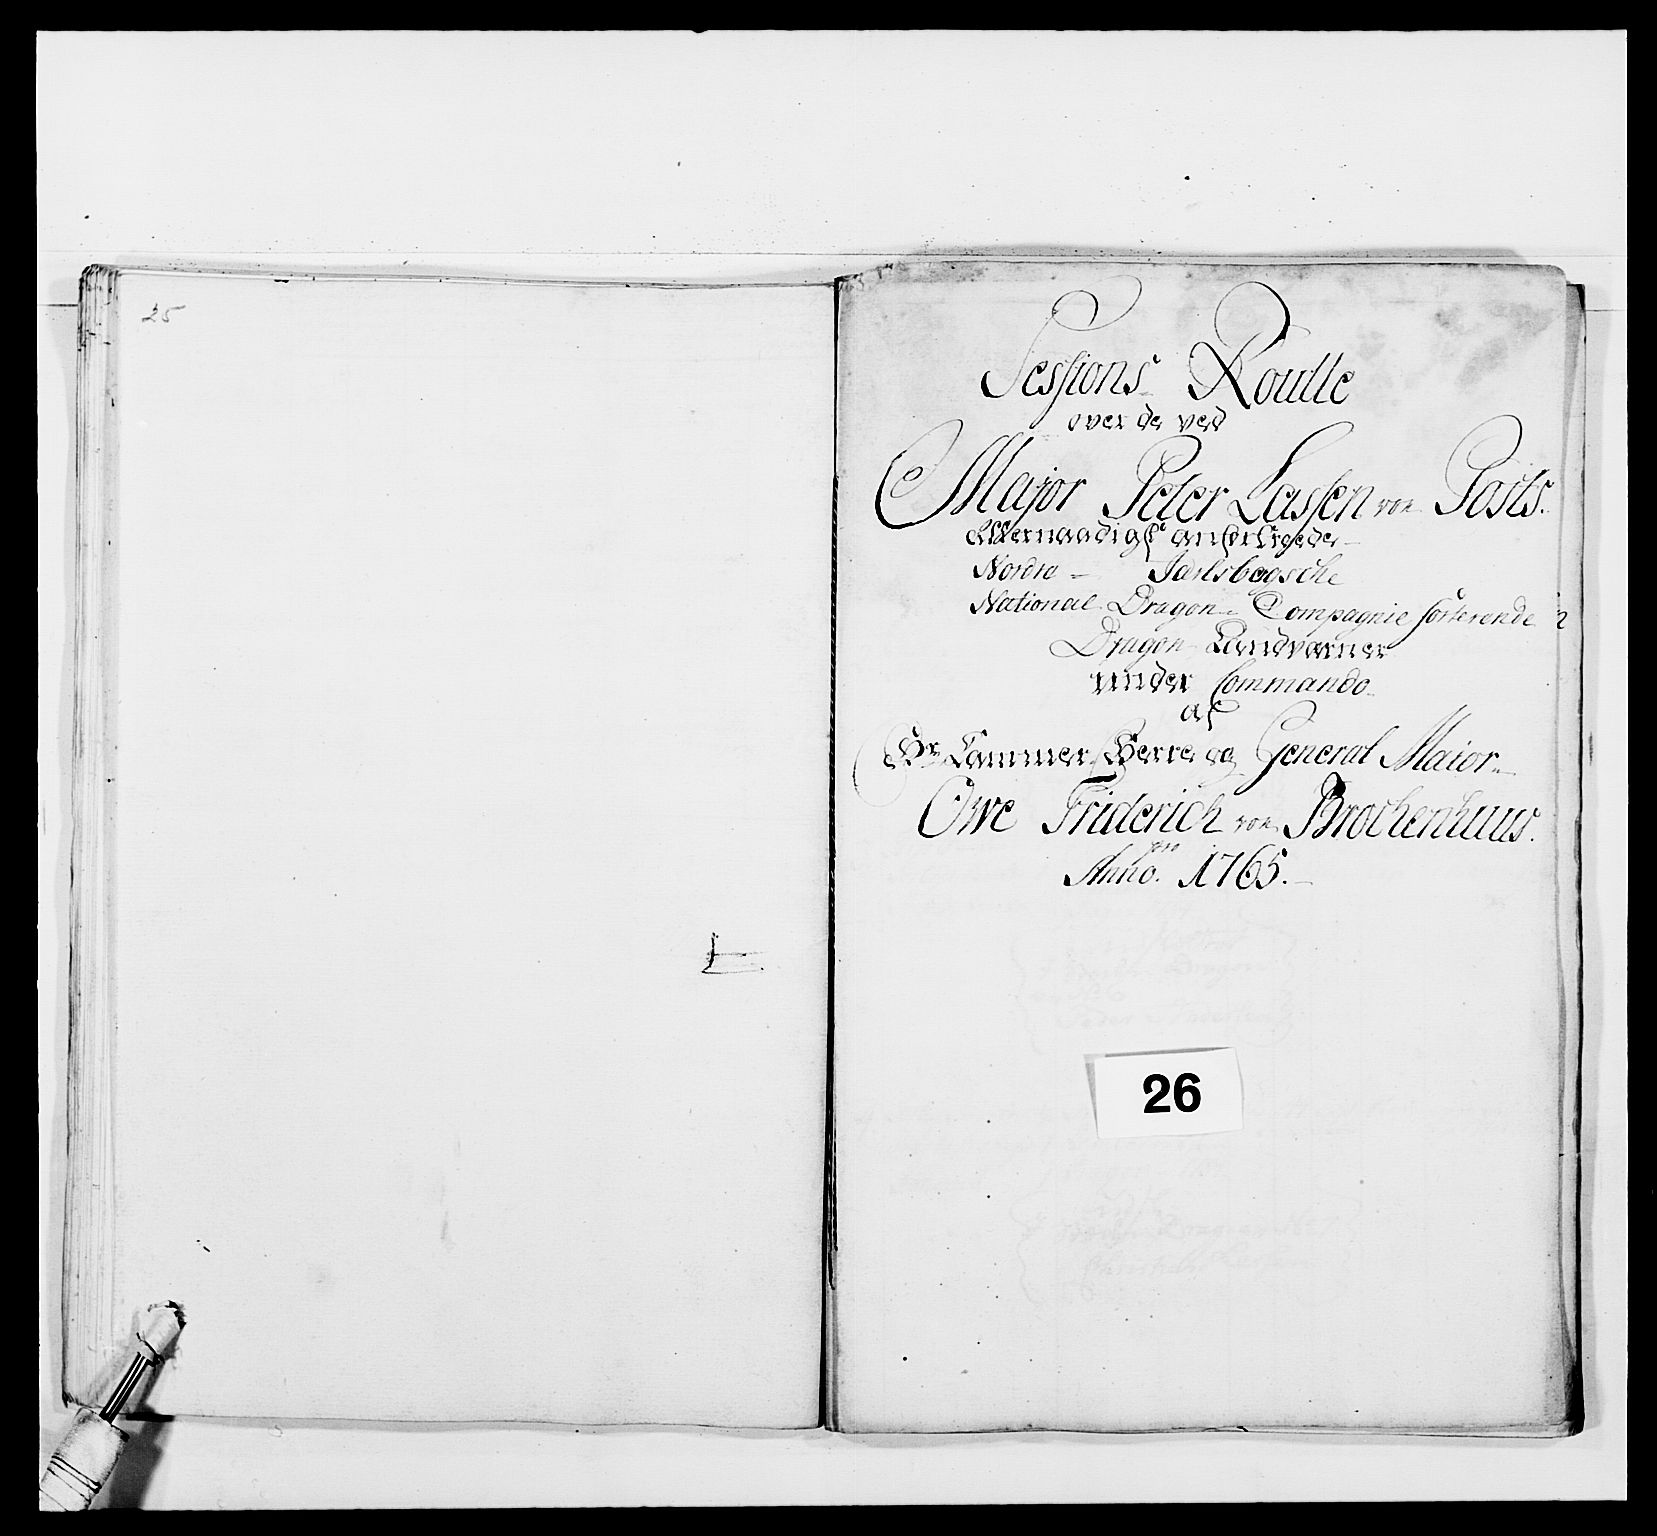 25
Sessions Roulle
over de ved
Major Peter Lassen von Posts.
Allernaadigst anfortroede
Nordre - Jarlsbergsche
National Dragon Compagnie sorterende
Dragon Landværner
under Commando
af
Hr Cammer Herre og General Maior
Owe Friderich von Brochenhuus.
pro
Anno. 1765.
26